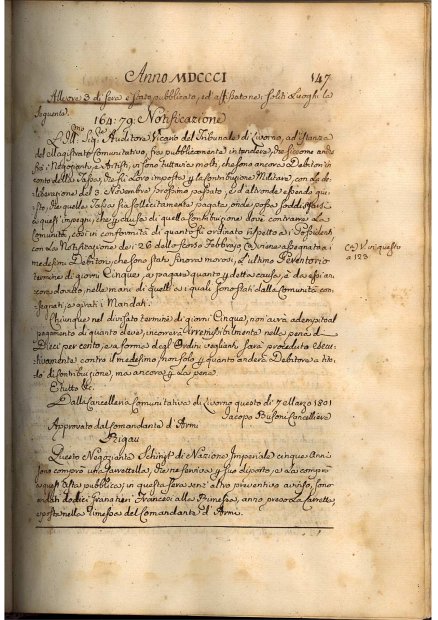 Anno MDCCCI
147
Alle ore 3 di sera è stato pubblicato, ed affisso ne' soliti Luoghi la
seguente.
164:79: Notificazione
L'Ill.mo Sig.re Auditore Vicario del Tribunale di Livorno, ad istanza
del Magistrato Comunitativo, fa pubblicamente intendere, che siccome anche
fra i Negozianti, e Artisti, vi sono tuttavia molti, che sono ancora Debitori in
conto della Tassa, che fù Loro imposta p la Contribuzione Militare, con La de-
liberazione del 3 Novembre prossimo passato, ed altronde essendo giu-
sto, che quella Tassa sia sollecitamente pagata, onde possa soddisfarsi
a quest'impegni, che p causa di quella Contribuzione deve contrarre La
Comunità, così in conformità di quanto fù ordinato rispetto ai Possidenti
con La Notificazione de' 26 dello scorso Febbrajo (a) viene assegnato a i
medesimi Debitori, che sono stati finora morosi, L'ultimo Perentorio
termine di giorni Cinque, a pagare quanto p detta causa, è da essi an-
cora dovuto, nelle mani di quelli a i quali sono stati dalla Comunità con-
segnati, e girati i Mandati.
Chiunque nel divisato termine di giorni Cinque, non avrà adempito al
pagamento di quanto deve, incorrerà irremissibilmente nella pena di
Dieci per cento, e a forma degl'Ordini veglianti sarà proceduto esecu-
tivamente contro il medesimo, non solo p quanto anderà Debitore a tito-
lo di Contribuzione, ma ancora p La pena.
E tutto &c.
Dalla Cancelleria Comunitativa di Livorno questo dì 7 Marzo 1801
Jacopo Bufoni Cancelliere
Approvato dal Comandante d'Armi
Rigau
Questo Negoziante di Nazione Imperiale cinque Anni
sono comprò una Carrozzella, che ne serviva p suo diporto, e La comprò
a quest'Asta pubblica; in questa sera senz'altro preventivo avviso, sono
andati dodici Granatieri Francesi alla Rimessa, anno preso La Carretta,
e posta nella Rimessa del Comandante d'Armi.
(a) V. in questo
a 123